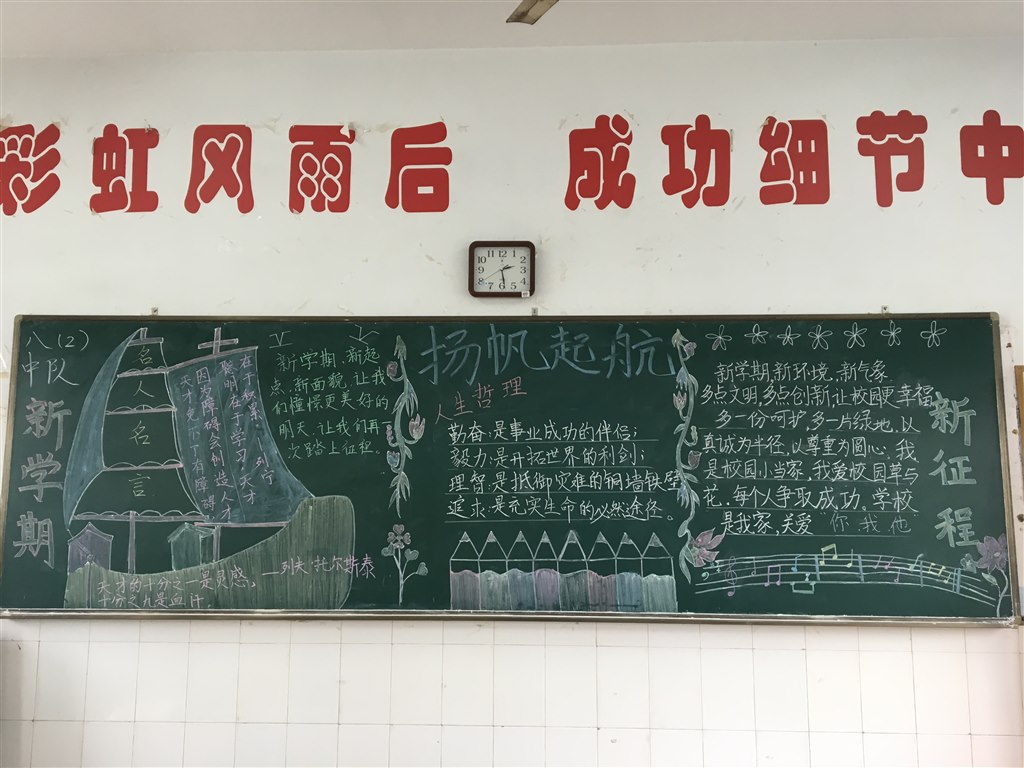 彩虹风雨后 成功细节中
八(2)
中队
新学期
名人名言
在于积累。——列宁
聪明在于学习,天才
因为障碍会创造人才
天才免不了有障碍
天才的十分之一是灵感,
十分之九是血汗。
——列夫·托尔斯泰
新学期,新起
点,新面貌,让我
们憧憬更美好的
明天,让我们再一
次踏上征程。
扬帆起航
人生哲理
勤奋:是事业成功的伴侣;
毅力:是开拓世界的利剑;
理智:是抵御灾难的铜墙铁壁
追求:是充实生命的必然途径。
新学期,新环境,新气象
多点文明,多点创新,让校园更幸福
多一份呵护,多一片绿地,以
真诚为半径,以尊重为圆心,我
是校园小当家,我爱校园草与
花,每个人争取成功。学校
是我家,关爱 你我他
新征程